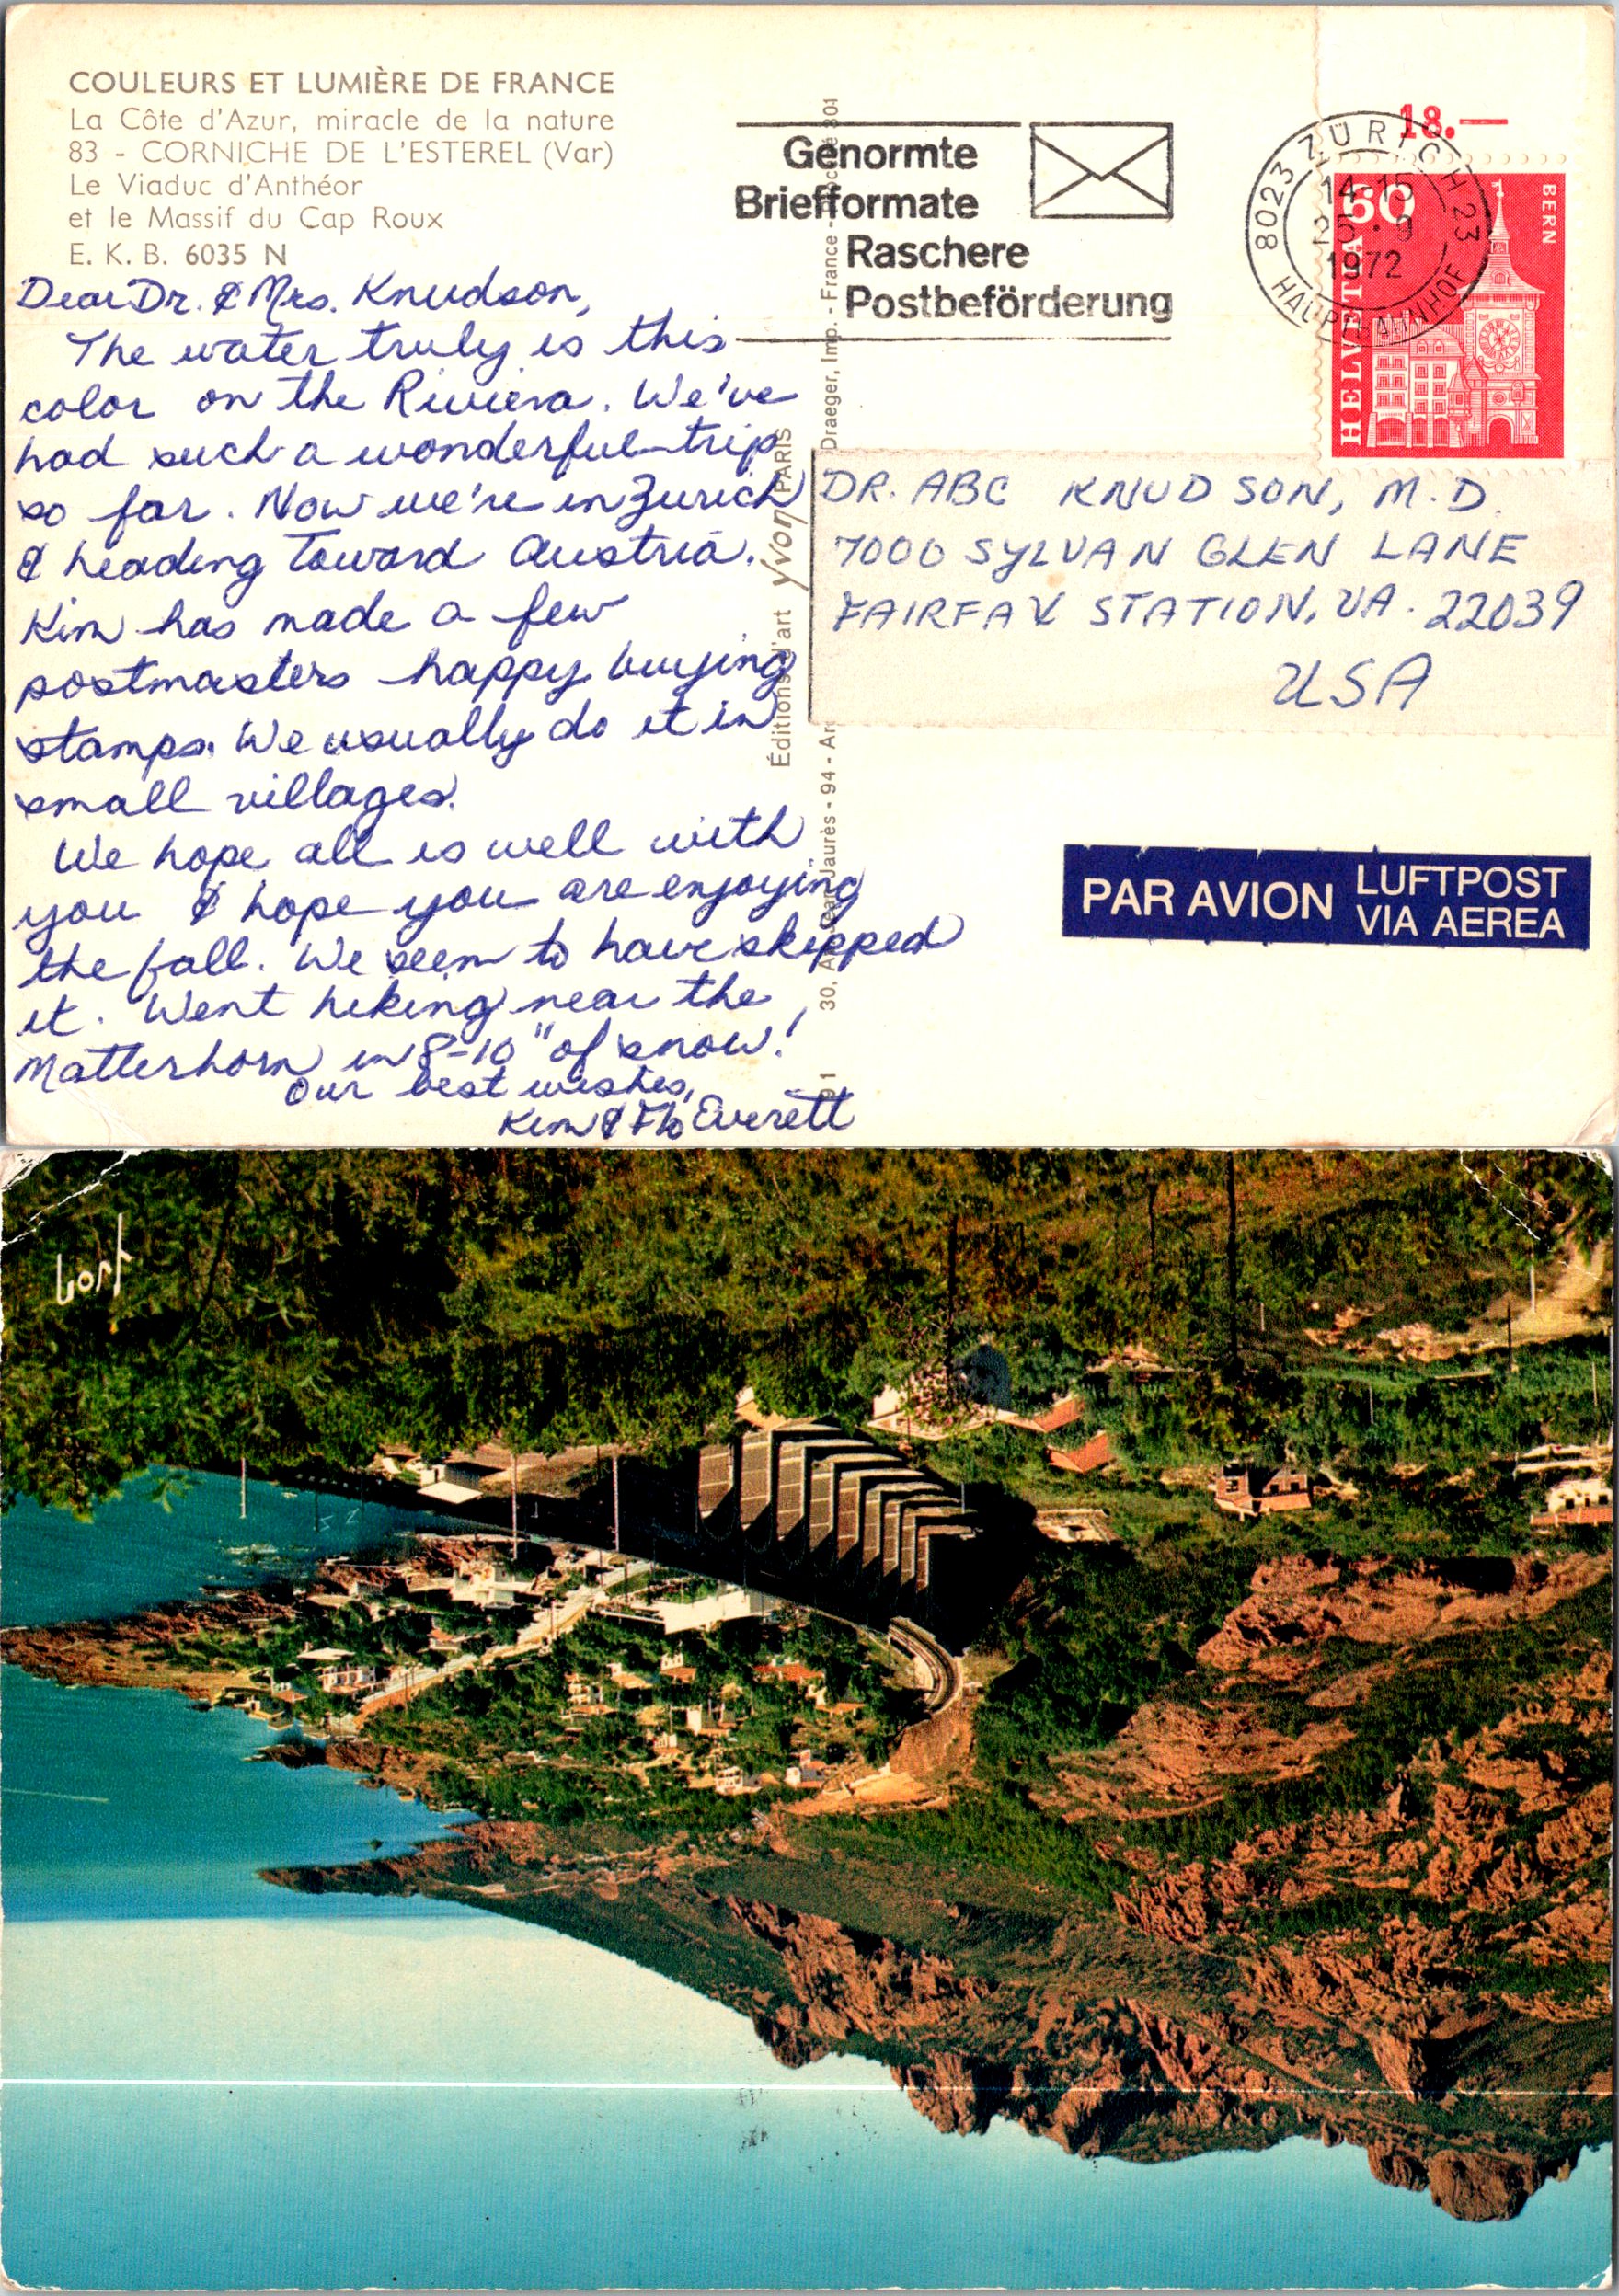 COULEURS ET LUMIÈRE DE FRANCE
La Côte d'Azur, miracle de la nature
83 - CORNICHE DE L'ESTEREL (Var)
Le Viaduc d'Anthéor
et le Massif du Cap Roux
E. K. B. 6035 N
Dear Dr. & Mrs. Knudson,
The water truly is this
color on the Riviera. We've
had such a wonderful trip
so far. Now we're in Zurich
& heading toward Austria.
Kim has made a few
postmasters happy buying
stamps. We usually do it in
small villages.
We hope all is well with
you & hope you are enjoying
the fall. We seem to have skipped
it. Went hiking near the
Matterhorn in 8-10" of snow!
Our best wishes,
Kim & Flo Everett
Éditions d'art yvon PARIS
Draeger, Imp. - France -
30, Jean Jaurès - 94 -
Genormte
Briefformate
Raschere
Postbeförderung
18.—
8023 ZÜRICH 23
14-15
25. 9
1972
HAUPTBAHNHOF
60
BERN
HELVETIA
DR. ABC KNUDSON, M.D.
7000 SYLVAN GLEN LANE
FAIRFAX STATION, VA. 22039
USA
PAR AVION LUFTPOST
VIA AEREA